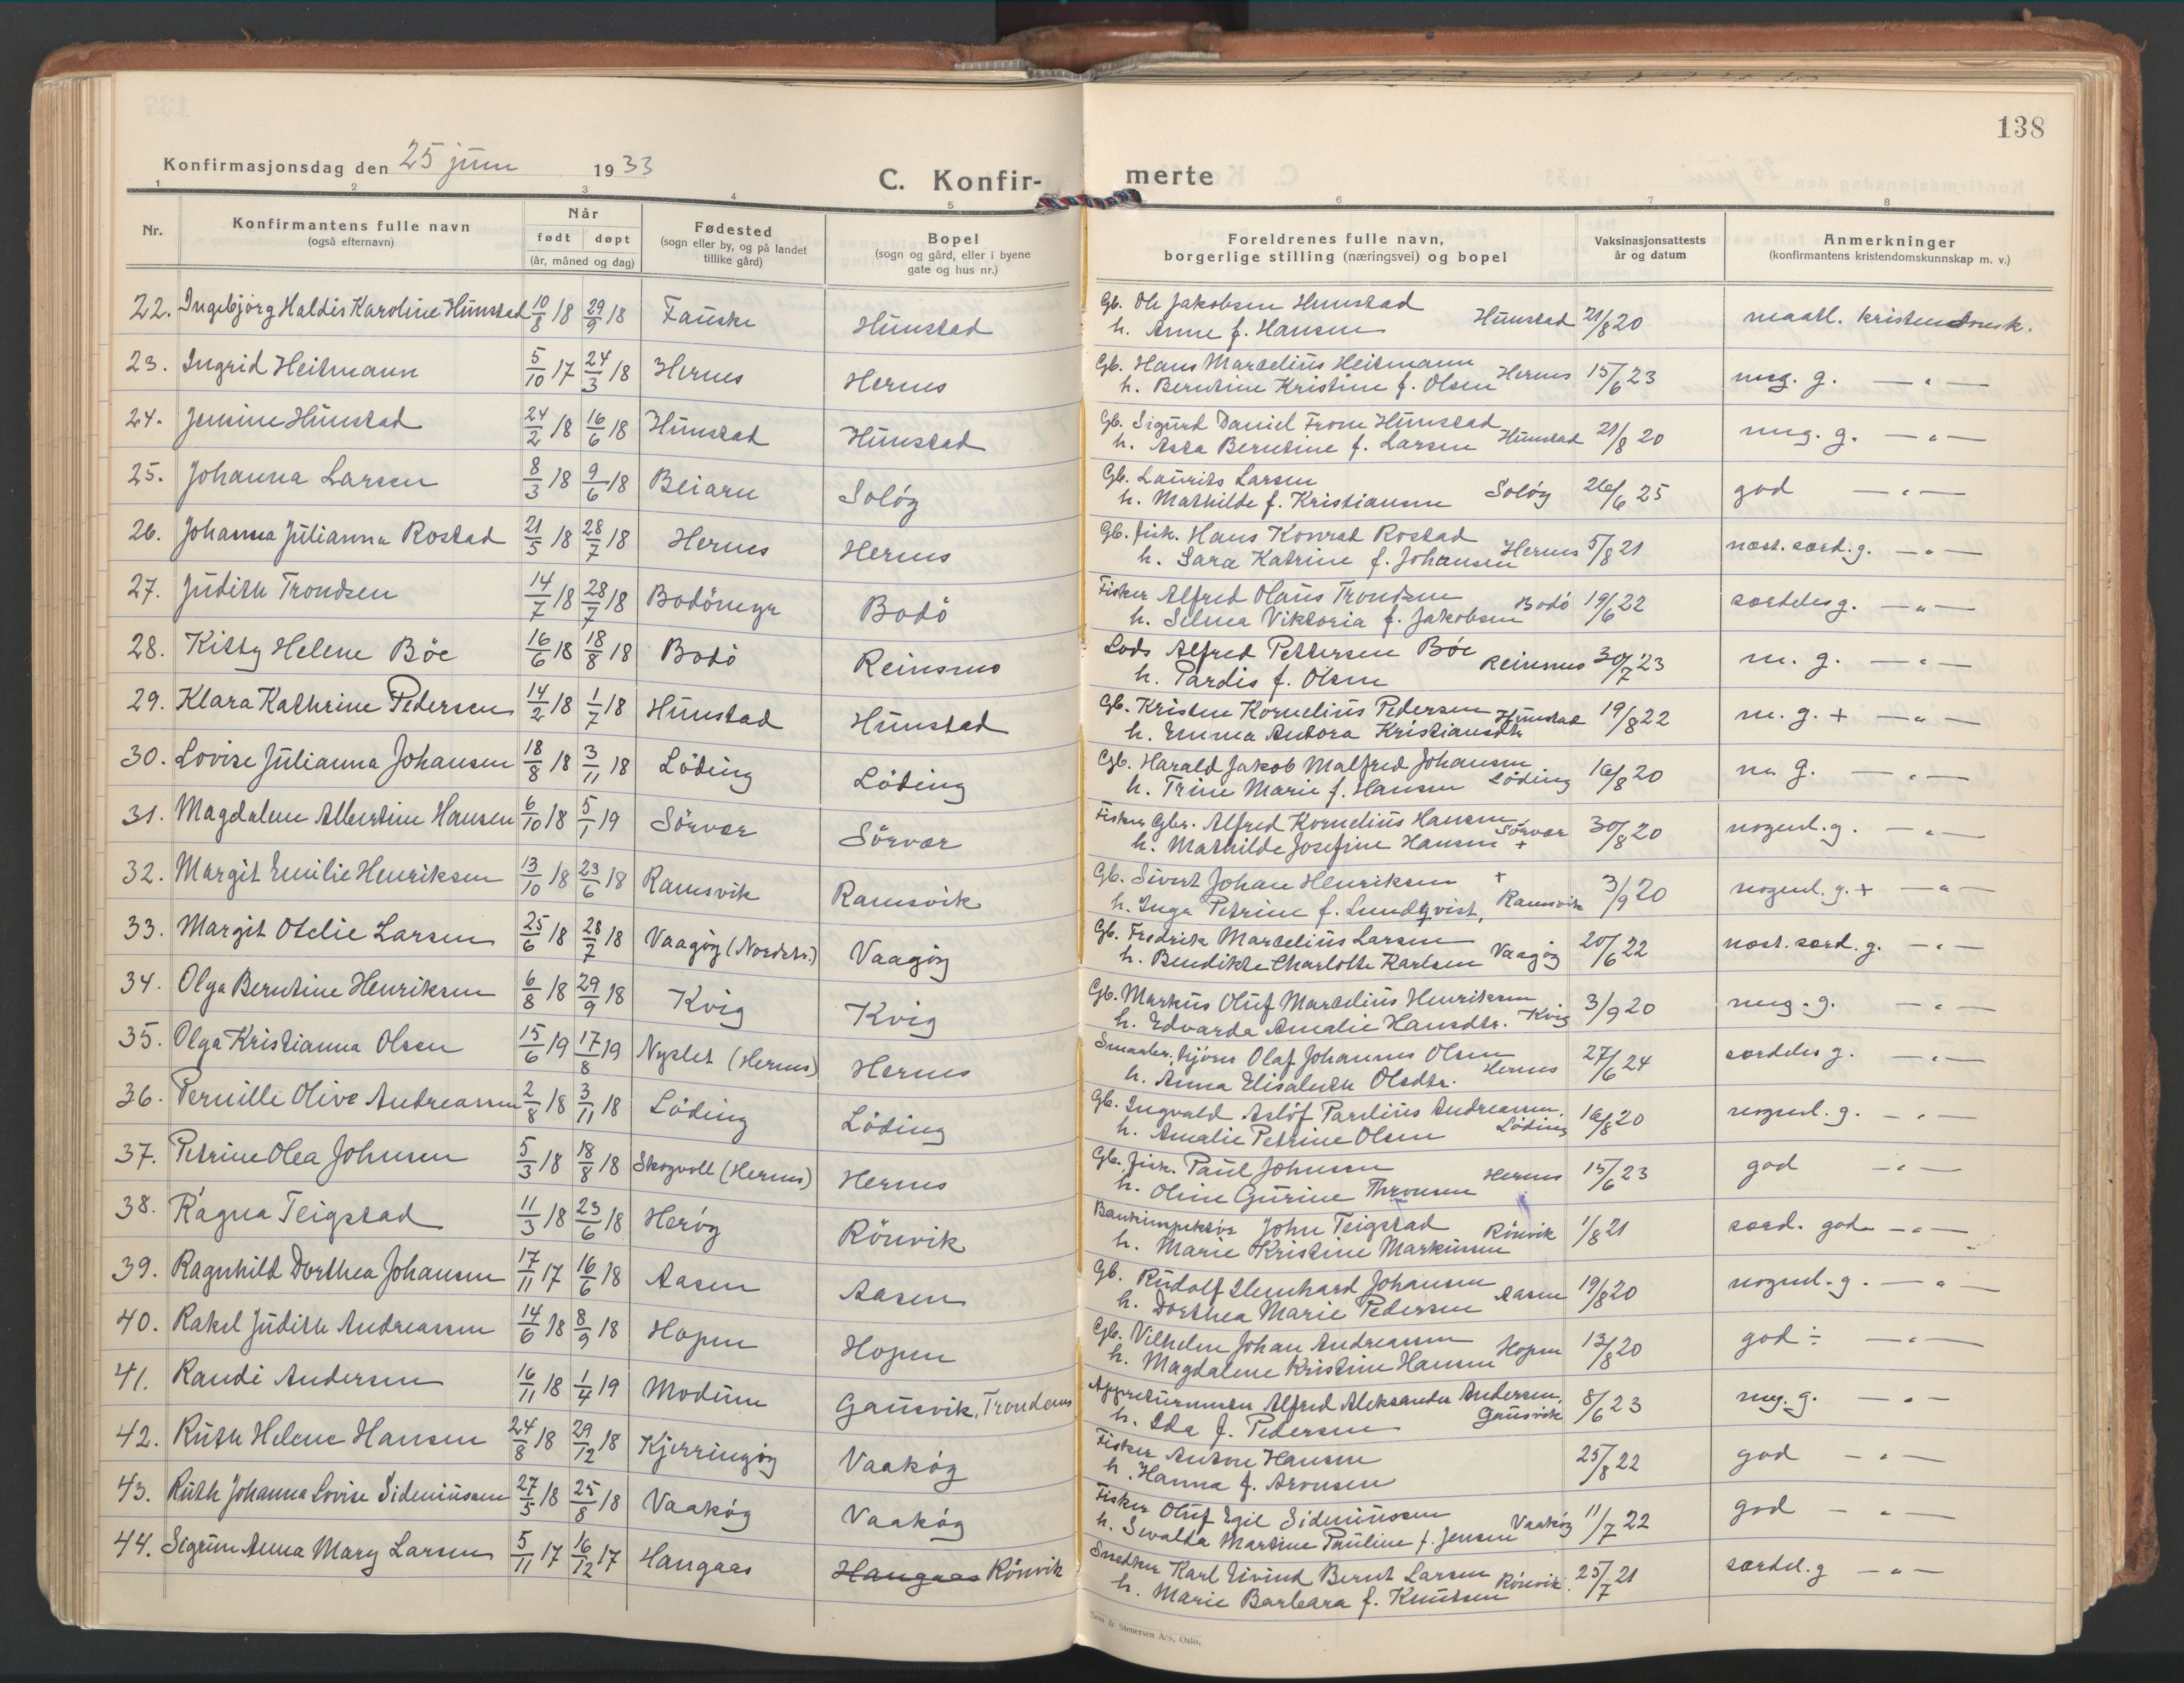 138
Konfirmasjonsdag den 25 juni 1933
C. Konfir- merte
1 2 3 4 5 6 7 8
Nr.
Konfirmantens fulle navn
(også efternavn)
Når
født døpt
(år, måned og dag)
Fødested
(sogn eller by, og på landet
tillike gård)
Bopel
(sogn og gård, eller i byene
gate og hus nr.)
Foreldrenes fulle navn,
borgerlige stilling (næringsvei) og bopel
Vaksinasjonsattests
år og datum
Anmerkninger
(konfirmantens kristendomskunnskap m. v.)
22. Ingebjörg Haldis Karoline Hunstad 10/8 18 29/9 18 Fauske Hunstad Gb. Ole Jakobsen Hunstad
h. Anne f. Hansen Hunstad 21/8 20 maatl. kristendomsk.
23. Ingrid Heitmann 5/10 17 24/3 18 Hernes Hernes Gb. Hans Marselius Heitmann
h. Berntine Kristine f. Olsen Hernes 15/6 23 meg. g. — " —
24. Jensine Hunstad 24/2 18 16/6 18 Hunstad Hunstad Gb. Sigurd Daniel From Hunstad
h. Asta Berntine f. Larsen Hunstad 21/8 20 meg. g. — " —
25. Johanna Larsen 8/3 18 9/6 18 Beiarn Solöy Gb. Laurits Larsen
h. Mathilde f. Kristiansen Solöy 26/6 25 god — " —
26. Johanna Julianna Rostad 21/5 18 28/7 18 Hernes Hernes Gb. fisk. Hans Konrad Rostad
h. Sara Katrine f. Johansen Hernes 5/8 21 næst. særd. g. — " —
27. Judith Trondsen 14/7 18 28/7 18 Bodömyr Bodö Fisker Alfred Olaus Trondsen
h. Selma Viktoria f. Jakobsen Bodö 19/6 22 særdeles g. — " —
28. Kitty Helene Böe 16/6 18 18/8 18 Bodö Reinsmo Lods Alfred Pettersen Böe
h. Pardis f. Olsen Reinsmo 30/7 23 m. g. — " —
29. Klara Kathrine Pedersen 14/2 18 1/7 18 Hunstad Hunstad Gb. Kristen Kornelius Pedersen
h. Emma Antora Kristiansdtr Hunstad 19/8 22 m. g. + — " —
30. Lovise Julianna Johansen 18/8 18 3/11 18 Löding Löding Gb. Harald Jakob Malfred Johansen
h. Trine Marie f. Hansen Löding 16/8 20 m g. — " —
31. Magdalene Albertine Hansen 6/10 18 5/1 19 Sörvær Sörvær Fisker Gbr. Alfred Kornelius Hansen
h. Mathilde Josefine Hansen + Sörvær 30/8 20 nogenl. g. — " —
32. Margit Emilie Henriksen 13/10 18 23/6 18 Ramsvik Ramsvik Gb. Sivert Johan Henriksen +
h. Inga Petrine f. Lundqvist, Ramsvik 3/9 20 nogenl. g. + — " —
33. Margit Otelie Larsen 25/6 18 28/7 18 Vaagöy (Nordstr.) Vaagöy Gb. Fredrik Marselius Larsen
h. Bendikte Charlotte Karlsen Vaagöy 20/6 22 næst. særd. g. — " —
34. Olga Berntine Henriksen 6/8 18 29/9 18 Kvig Kvig Gb. Markus Oluf Marselius Henriksen
h. Edvarda Amalie Hansdtr. Kvig 3/9 20 meg. g. — " —
35. Olga Kristianna Olsen 15/6 19 17/8 19 Nyslet (Hernes) Hernes Smaabr. Olaf Johannes Olsen
h. Anna Elisabeth Olsdtr. Hernes 27/6 24 særdeles g. — " —
36. Pernille Olive Andreassen 2/8 18 3/11 18 Löding Löding Gb. Ingvald Aslöf Paulius Andreassen.
h. Amalie Petrine Olsen Löding 16/8 20 nogenl. g. — " —
37. Petrine Olea Johnsen 5/3 18 18/8 18 Skogvoll (Hernes) Hernes Gb. fisk. Paul Johnsen
h. Oline Gurine Thronsen Hernes 15/6 23 god — " —
38. Ragna Teigstad 11/3 18 23/6 18 Heröy Rönvik John Teigstad
h. Marie Kristine Markussen Rönvik 1/8 21 særd. god — " —
39. Ragnhild Dorthea Johansen 17/11 17 16/6 18 Aasen Aasen Gb. Rudolf Johansen
h. Dorthea Marie Pedersen Aasen 19/8 20 nogenl. g. — " —
40. Rakel Judith Andreassen 14/6 18 8/9 18 Hopen Hopen Gb. Vilhelm Johan Andreassen
h. Magdalene Kristine Hansen Hopen 13/8 20 god ÷ — " —
41. Randi Andersen 16/11 18 1/4 19 Modum Gausvik, Trondenes Appreturmester Alfred Aleksander Andersen,
h. Ida f. Pedersen Gausvik 8/6 23 meg. g. — " —
42. Ruth Helene Hansen 24/8 18 29/12 18 Kjerringöy Vaaköy Fisker Anton Hansen
h. Hanna f. Aronsen 25/8 22 god — " —
43. Ruth Johanna Lovise Sideniussen 27/5 18 25/8 18 Vaaköy Vaaköy Fisker Oluf Egil Sideniussen
h. Sevalda Martine Pauline f. Jensen Vaaköy 11/7 22 god — " —
44. Sigrun Anna Mary Larsen 5/11 17 16/12 17 Haugaas Haugaas Rönvik Snedker Karl Eivind Bernt Larsen
h. Marie Barbara f. Knutsen Rönvik. 25/7 21 særdel. g — " —
Stenersen A/S, Oslo.